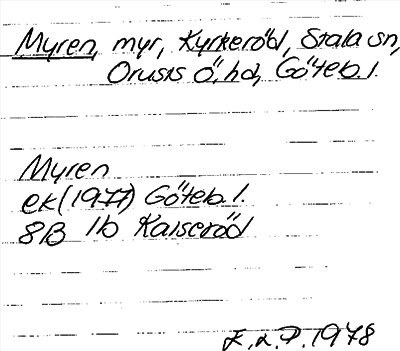 Myren, myr, Kyrkeröd, Stala sn,
Orusts Ö. hd, Göteb. l.
Myren
ek (1977) Göteb. l.
8B 1b Kaiseröd
1978